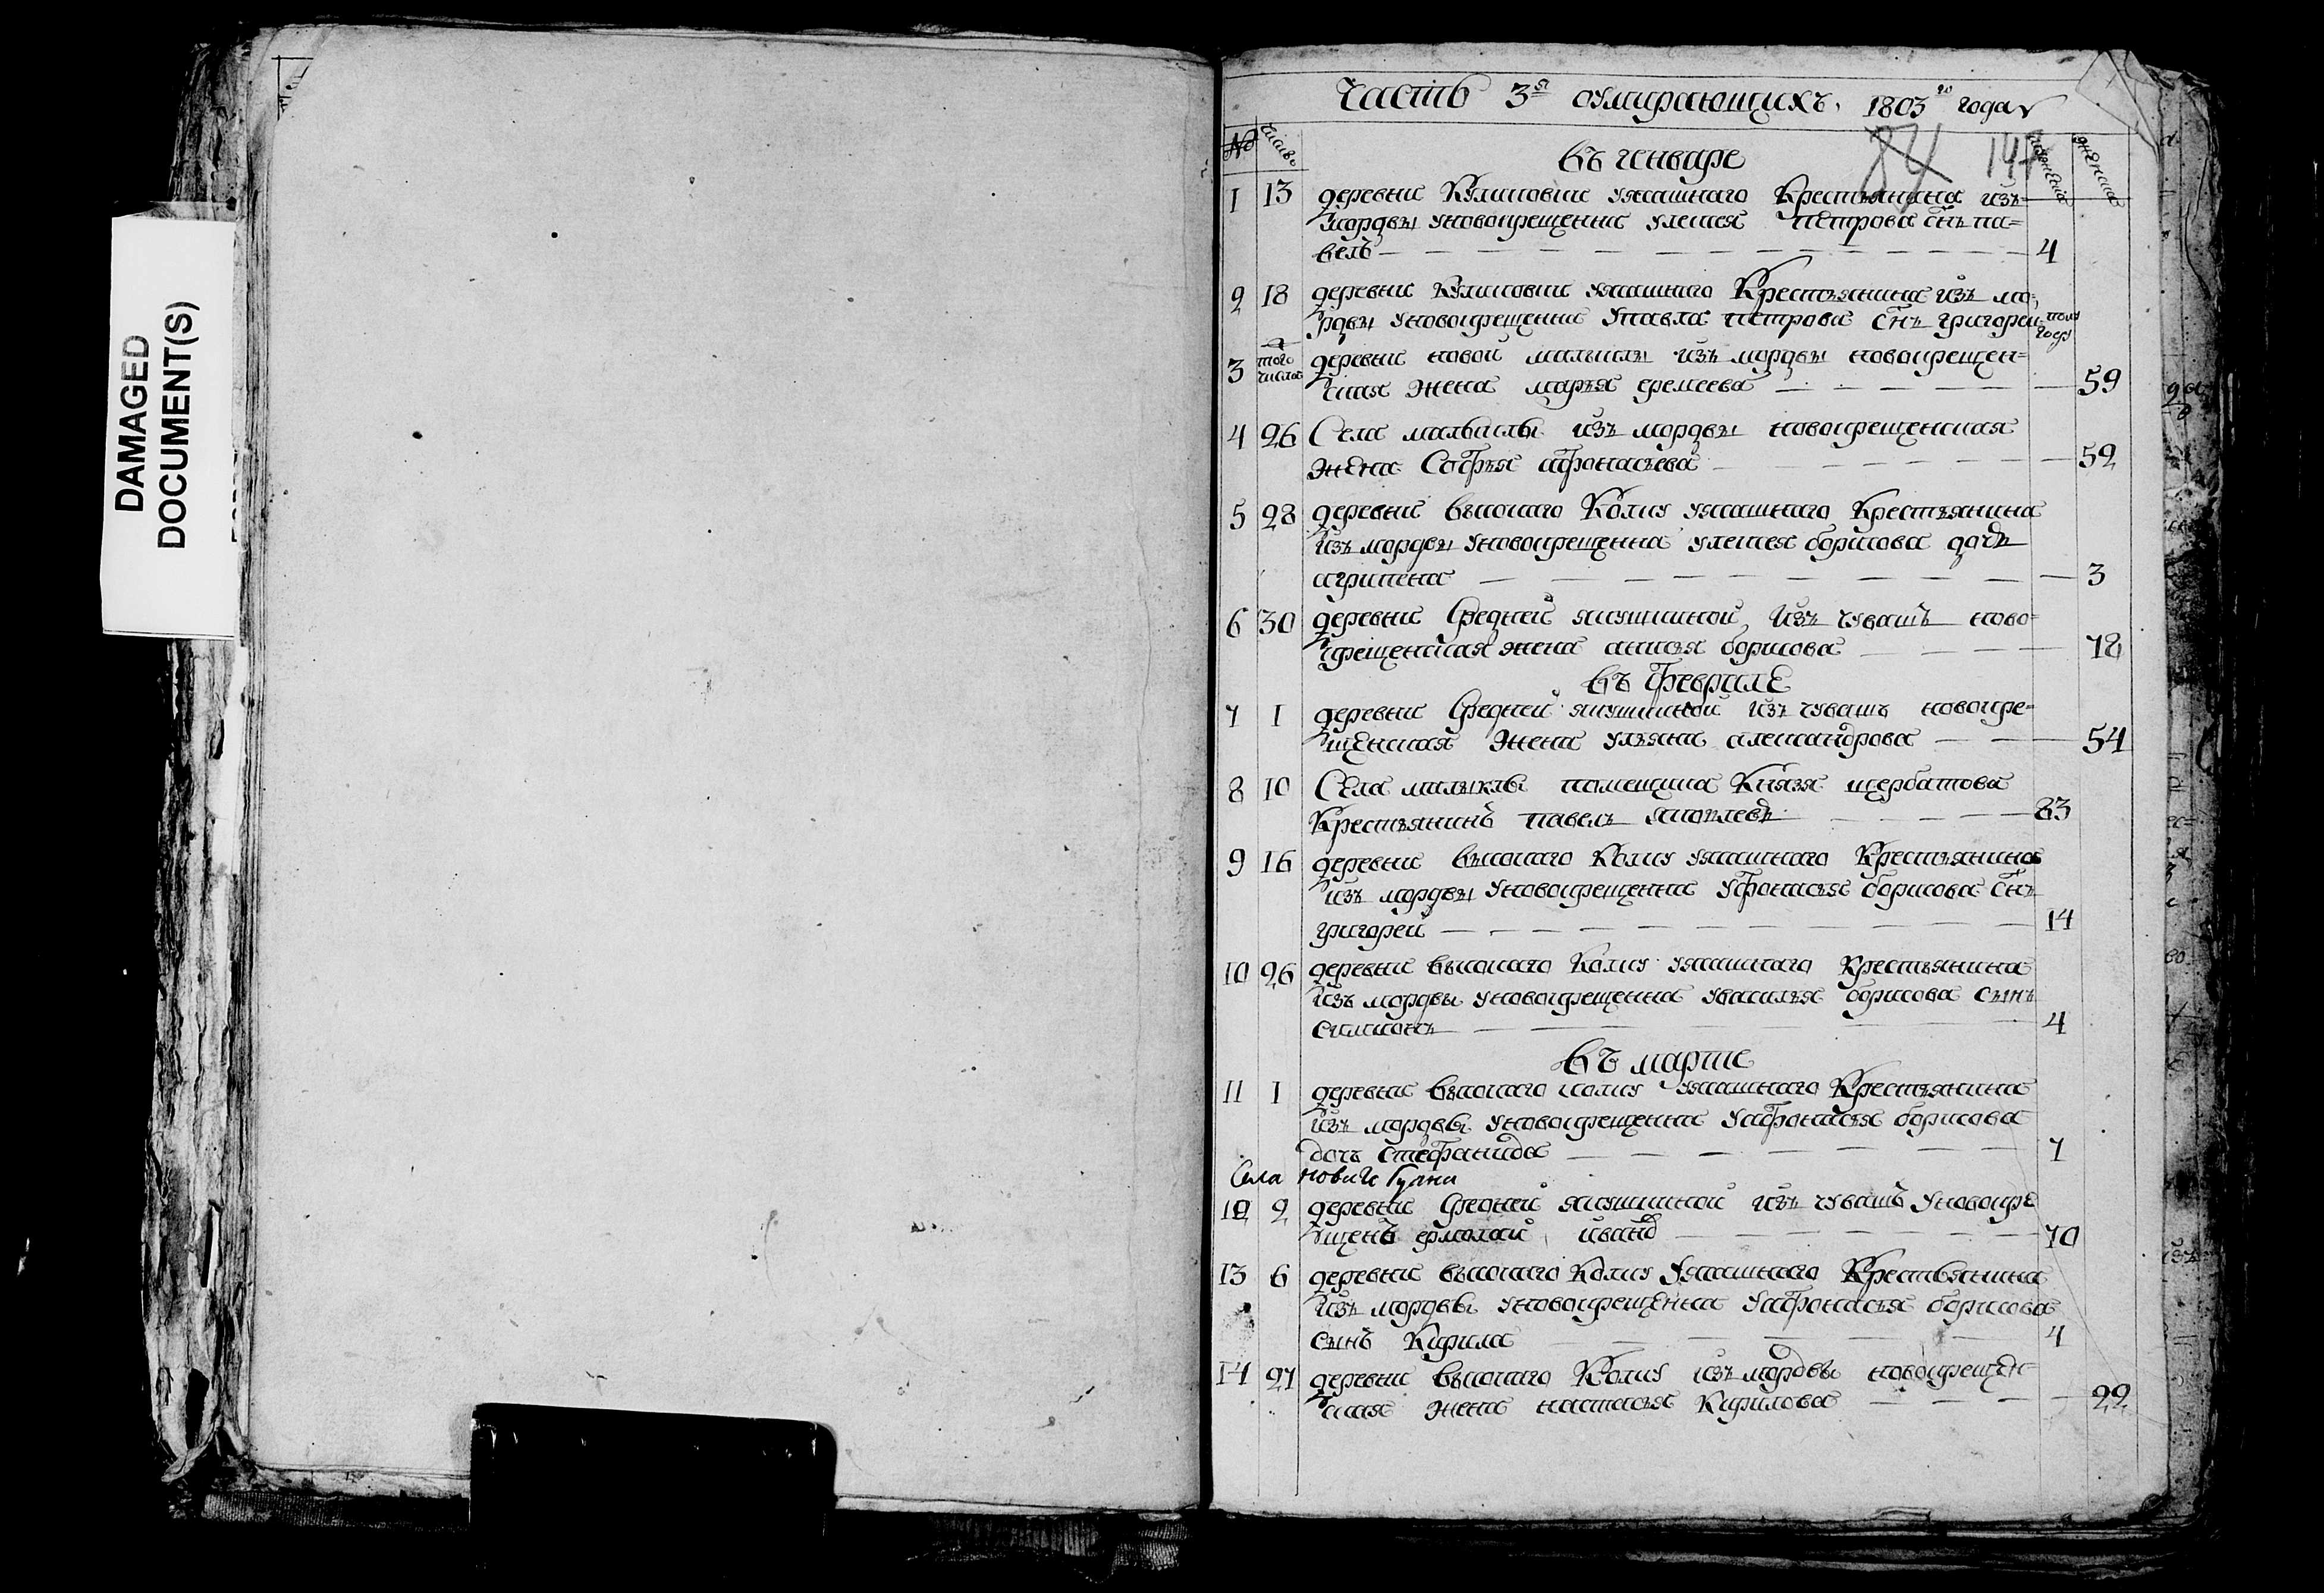 DAMAGED
DOCUMENT(S)
Часть 3я оумирающихъ. 1803го года
№ число мужеска женска
84 147
въ генваре
1 13 деревни Куликовки ясашнаго Крестьянина изъ
мордвы уновокрещенна улексея петрова снъ па=
велъ 4
2 18 деревни Куликовки ясашнаго Крестьянина изъ мо=
рдвы уновокрещенна упавла петрова снъ григорей полу
год
3 того деревни новой малыклы изъ мордвы новокрещен=
числа ская жена марья еремеева 59
4 26 Села малыклы изъ мордвы новокрещенская
жена Софья афонасьева 52
5 28 деревни высокаго Колку ясашнаго Крестьянина
изъ мордвы уновокрещенна улексея борисова дочь
агрипена 3
6 30 деревни Средней якушкиной изъ чувашъ ново=
крещенская жена анисья борисова 78
въ Феврале
7 1 деревни Средней якушкиной изъ чувашъ новокре=
щенская жена ульяна александрова 54
8 10 Села малыклы помещика Князя щербатова
Крестьянинъ павелъ яковлевъ 83
9 16 деревни высокаго Колку ясашнаго Крестьянина
изъ мордвы уновокрещенна уфонасья борисова снъ
григорей 14
10 26 деревни высокаго Колку ясашнаго Крестьянина
изъ мордвы уновокрещенна увасилья борисова сынъ
симионъ 4
въ марте
11 1 деревни высокаго колку ясашнаго Крестьянина
изъ мордвы уновокрещенна уафонасья борисова
дочь стефанида 7
Села новые
12 2 деревни Средней якушкиной изъ чувашъ уновокре
щенъ ермолай иванов 70
13 6 деревни высокаго Колку ясашнаго Крестьянина
изъ мордвы уновокрещенна уафонасья борисова
сынъ Кирила 4
14 27 деревни высокаго Колку изъ мордвы новокрещен
ская жена настасья Кирилова 22